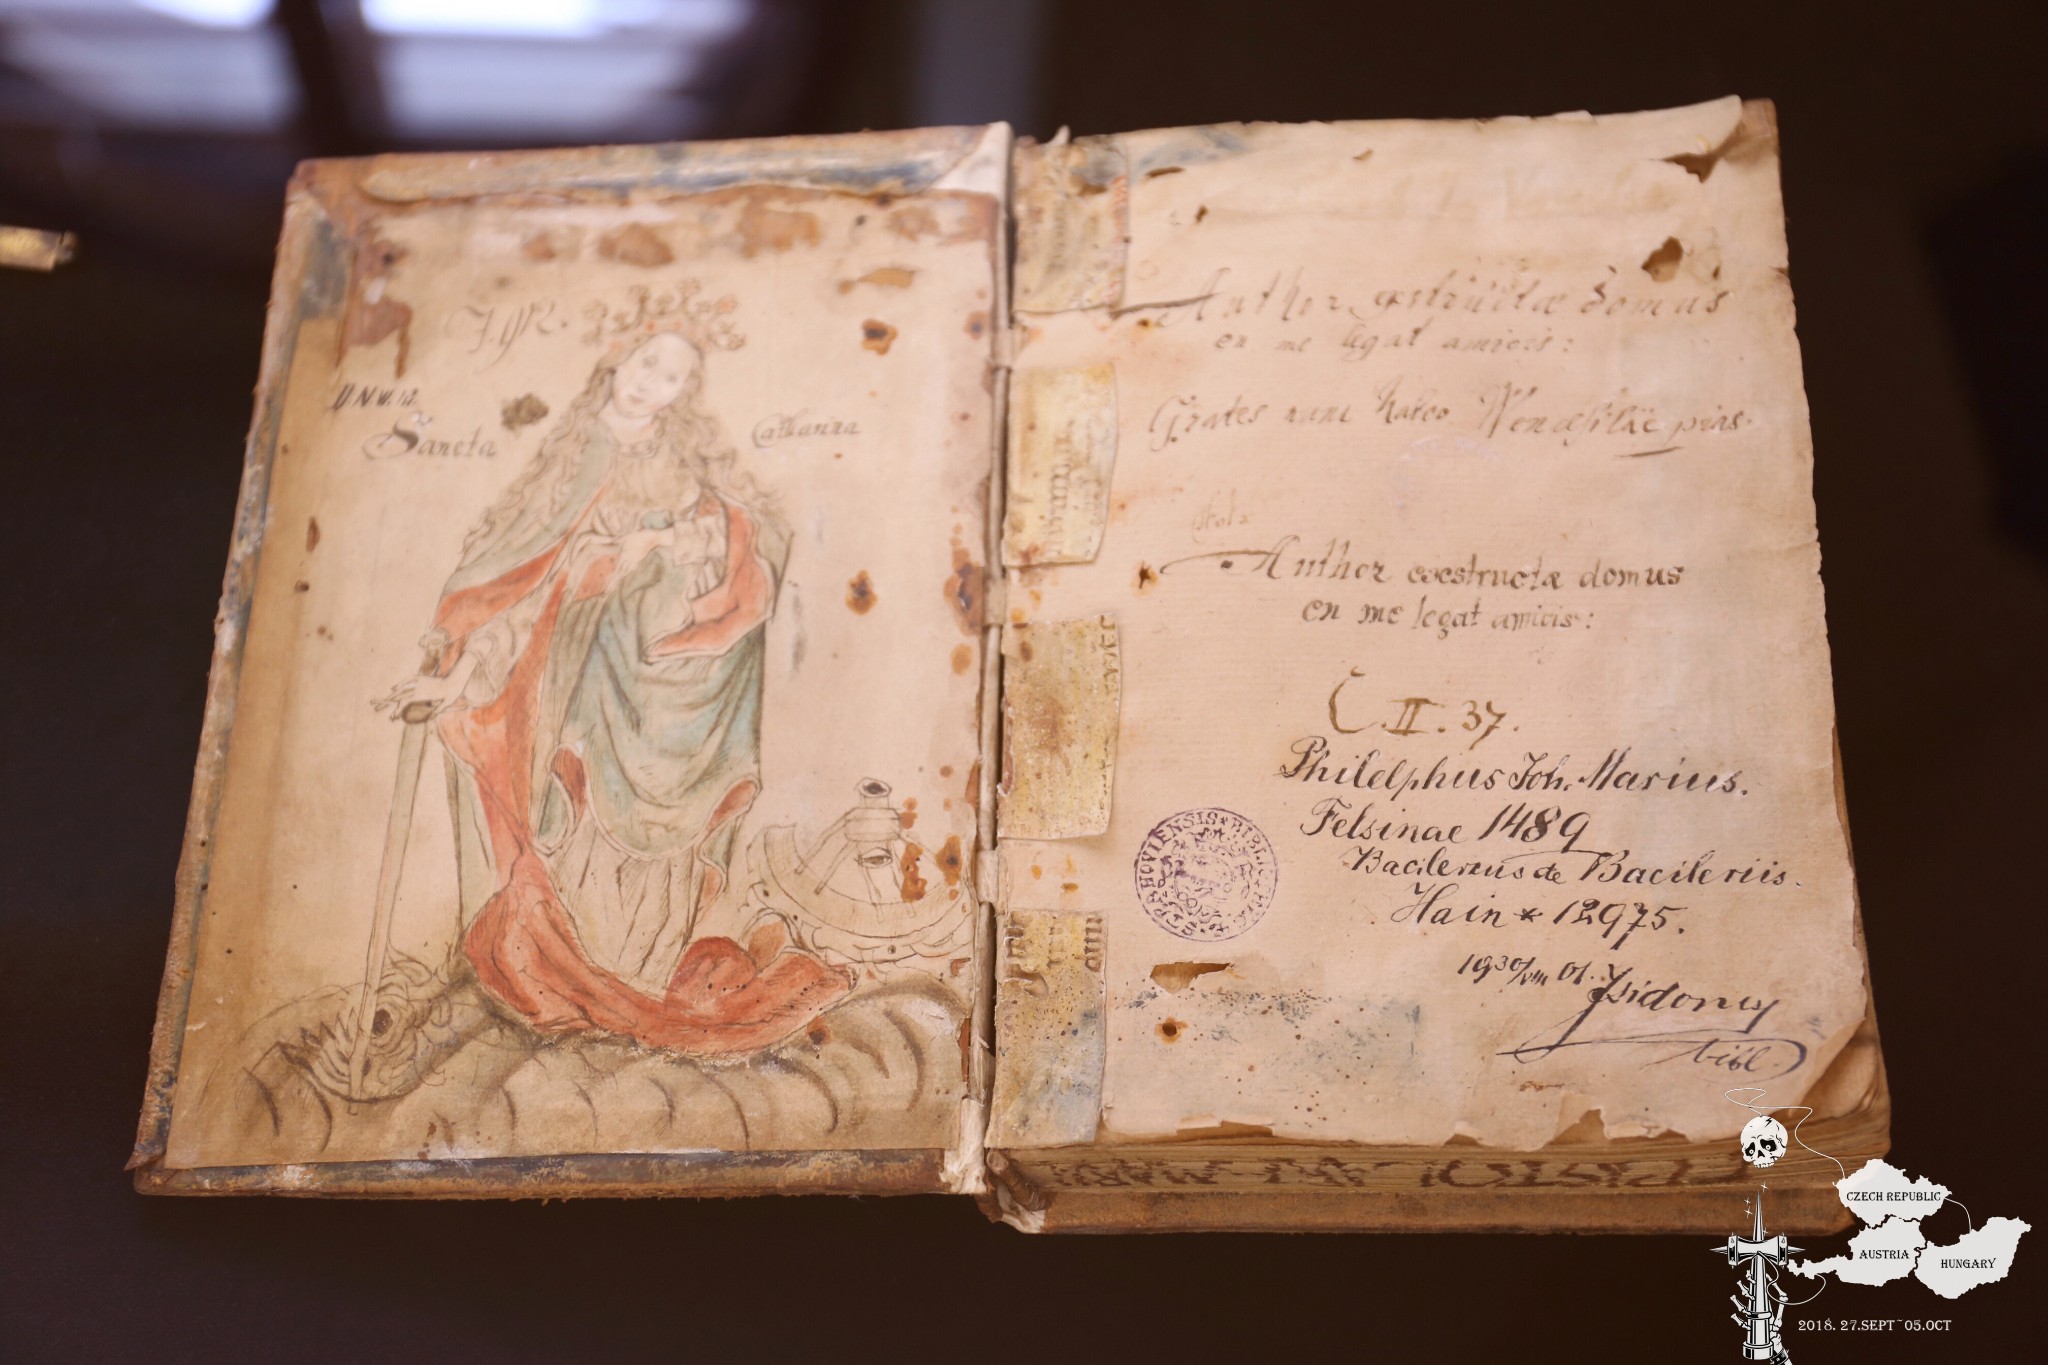 J.M.
Sancta
Catharina
Author exstructæ domus
en me legat amicis:
Grates nunc
Author exstructæ domus
en me legat amicis:
C.II.37.
Philelphus Joh. Marius.
Felsinae 1489
Bacilerius de Bacileriis.
Hain * 12975.
STRAHOVIENSIS
1930/VIII 01. Isidorus
bibl.
CZECH REPUBLIC
AUSTRIA
HUNGARY
2018. 27.SEPT~05.OCT